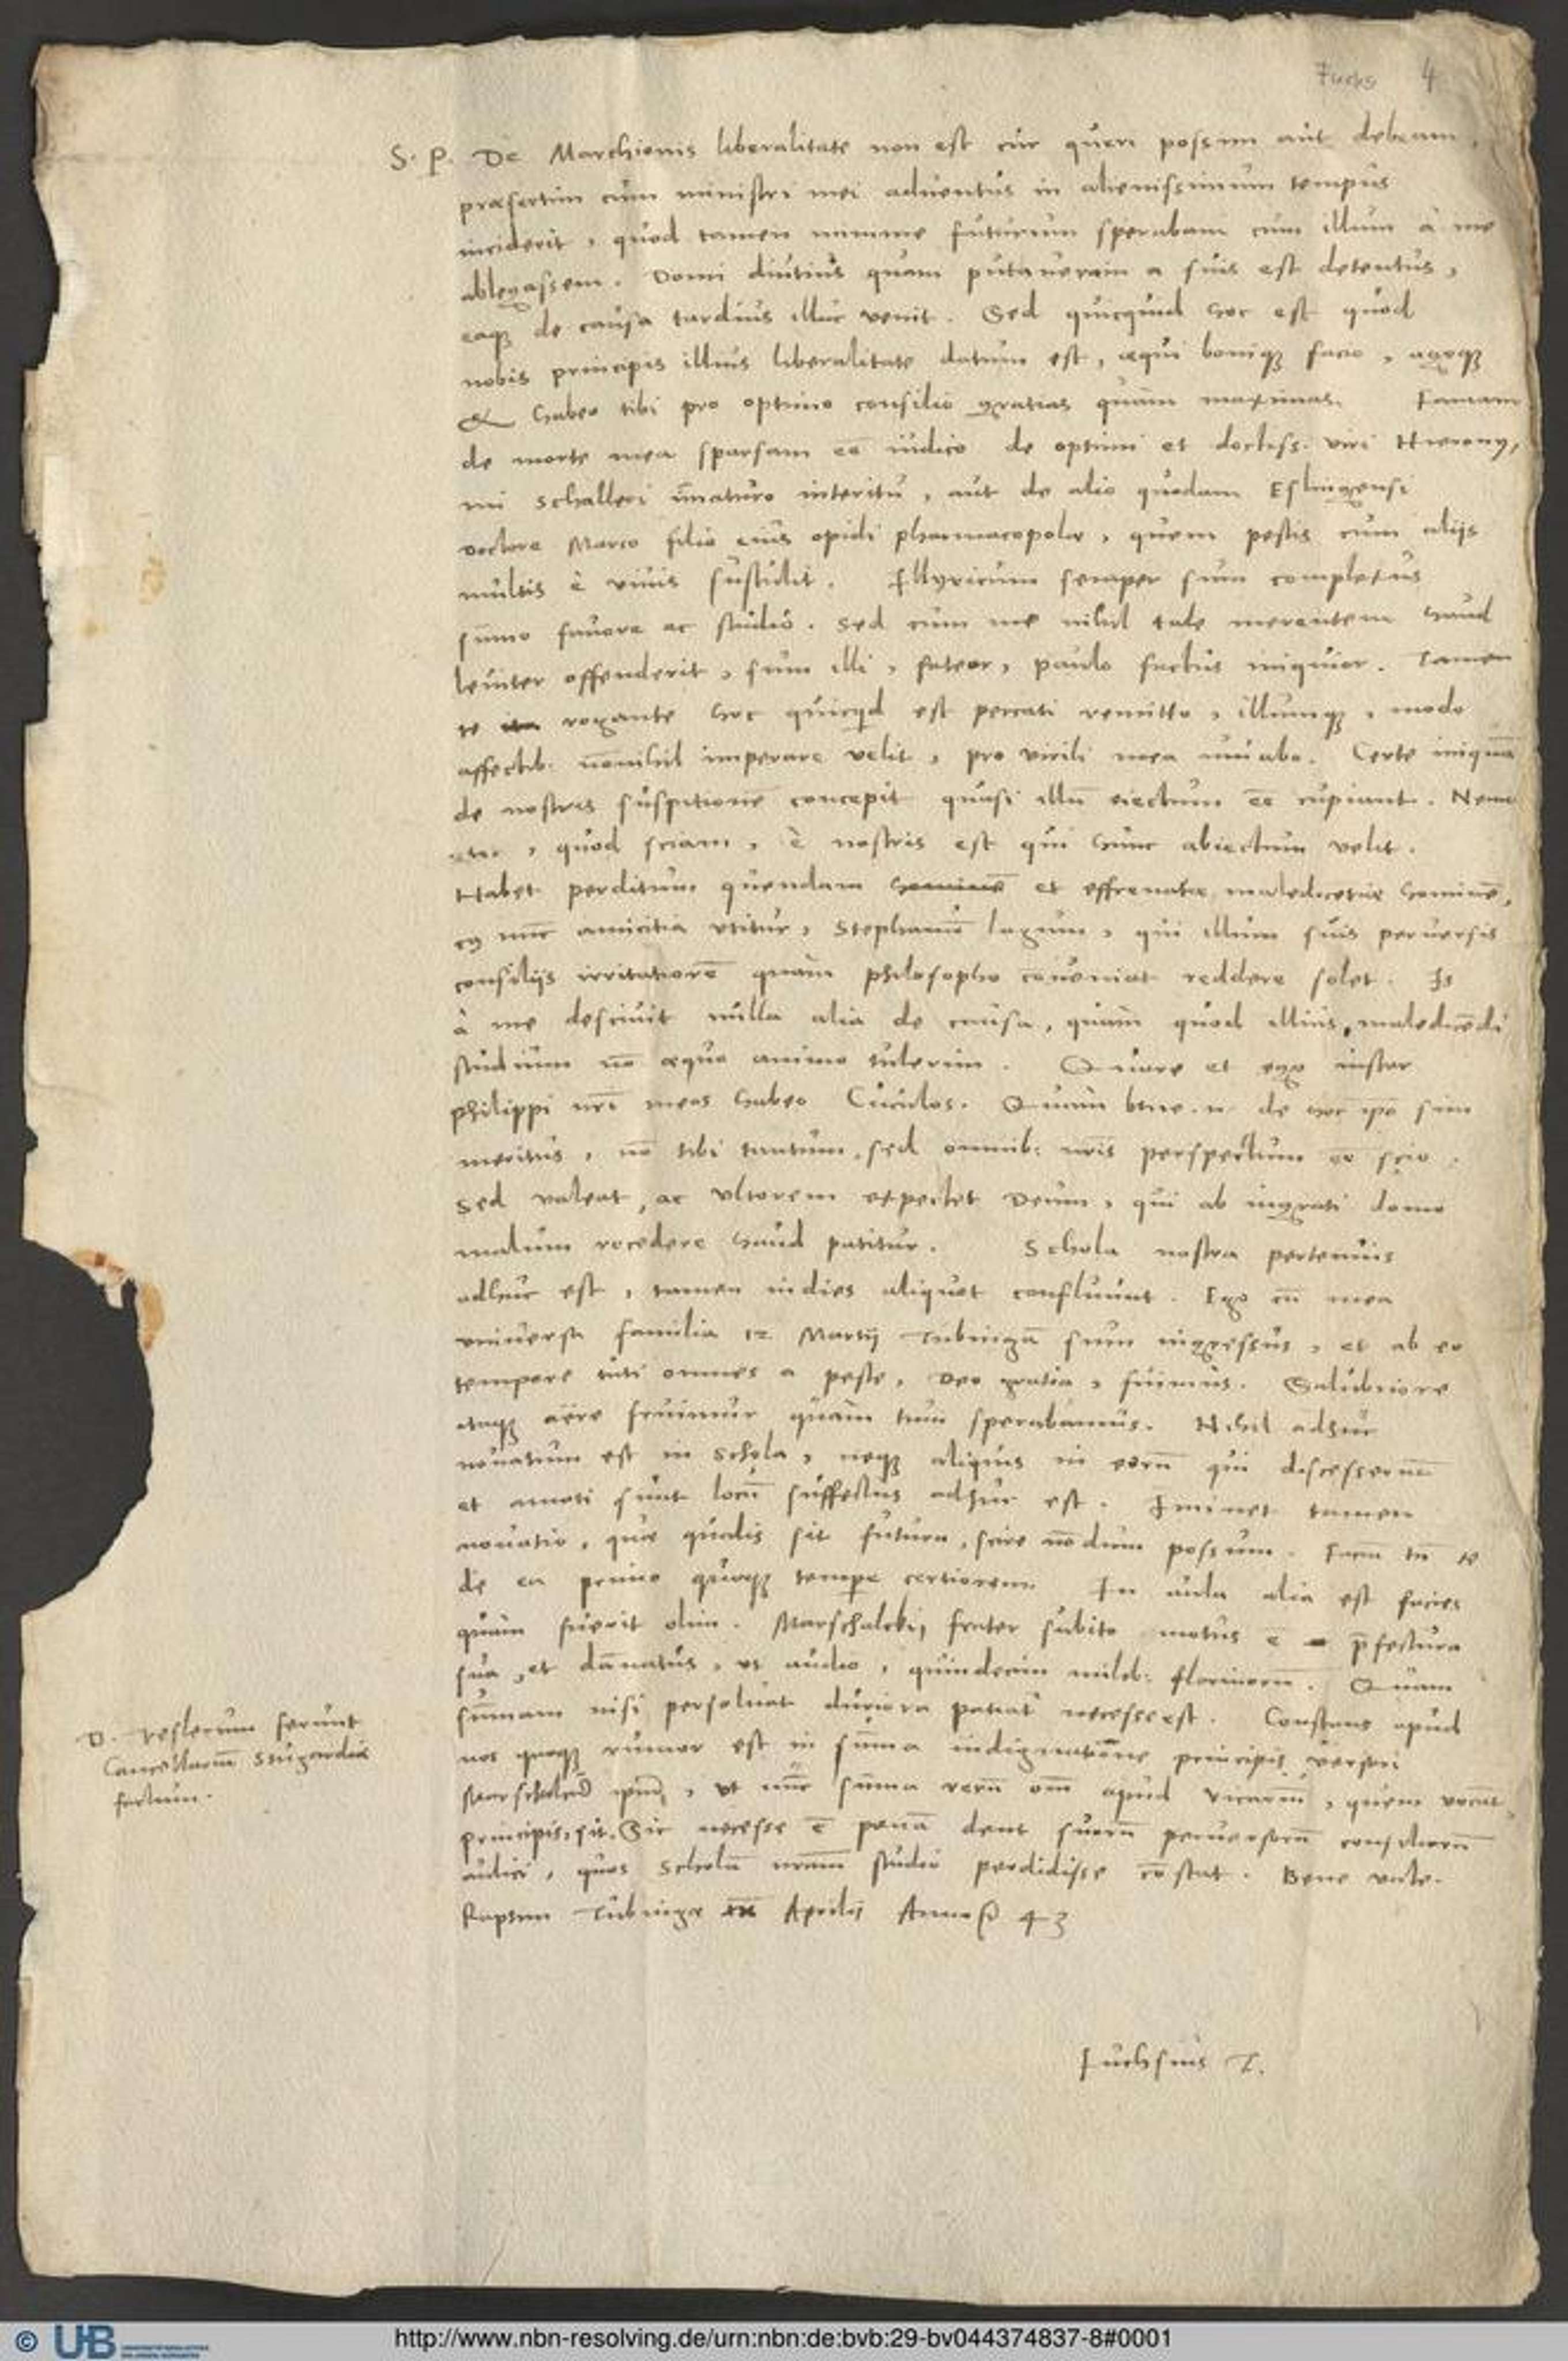 Fuchs 4
S. P. De Marchionis liberalitate non est cur queri possim aut debeam,
praesertim cum ministri mei aduentus in alienissimum tempus
inciderit, quod tamen minime futurum sperabam cum illum à me
ablegassem. Domi diutius quam putaueram a suis est detentus,
eaqꝫ de causa tardius illuc venit. Sed quicquid hoc est quod
nobis principis illius liberalitate datum est, aequi boniqꝫ facio, agoqꝫ
& habeo tibi pro optimo consilio gratias quàm maximas. Famam
de morte mea sparsam eē iudico de optimi et doctiss. viri Hierony,
mi Schalleri im̄aturo interitu, aut de alio quodam Eslingensi
doctore Marco filio eius opidi pharmacopolae, quem pestis cum alijs
multis è viuis sustulit. Illyricum semper sum complexus
sum̄o fauore ac studio. Sed cum me nihil tale merentem haud
leuiter offenderit, sum illi, fateor, paulo factus iniquior. Tamen
te rogante hoc quicqd est peccati remitto, illumqꝫ, modo
affectib: nōnihil imperare velit, pro virili mea iuuabo. Certe iniquā
de nostris suspitionē concepit quasi illū eiectum eē cupiant. Nemo
, quod sciam, è nostris est qui hunc abiectum velit.
Habet perditum quendam hominē et effrenatae maledicentiae hominē,
nūc amicitia vtitur, Stephanū lagum, qui illum suis peruersis
consilijs irritatiorē quàm philosopho cōueniat reddere solet. Is
à me desciuit nulla alia de causa, quàm quod illius maledicēdi
studium nō aequo animo tulerim. Quare et ego instar
Philippi nrī meos habeo Cuculos. Quàm bene .n. de hoc ipo sim
meritus, nō tibi tantum, sed omnib: nrīs perspectum eē scio.
Sed valeat, ac vltorem expectet Deum, qui ab ingrati domo
malum recedere haud patitur. Schola nostra pertenuis
adhuc est, tamen indies aliquot confluunt. Ego cū mea
vniuersa familia 12 Martij Tubingā sum ingressus, et ab eo
tempore tuti omnes a peste, Deo gratia, fuimus. Salubriore
itaqꝫ aëre fruimur quàm tum sperabamus. Nihil adhuc
nouatum est in Schola, neqꝫ aliquis in eorū qui discesserūt
et amoti sunt locū suffectus adhuc est. Im̄inet tamen
nouatio, quae qualis sit futura, scire nōdum possum. Faciā tn̄ te
de ea primo quoqꝫ tempe certiorem. In aula alia est facies
quàm fuerit olim. Marschalcki frater subito motus e p̄fectura
sua, et dānatus, vt audio, quindecim milib: florinorū. Quam
sum̄am nisi persoluat duriora patiat necesse est. Constans apud
nos quoqꝫ rumor est in sum̄a indignatione principis versari
Marschalcū ipm, vt nūc sum̄a rerū om̄ apud vicariū, quem vocāt,
principis, sit. Sic necesse ē penā dent suorū peruersorū consiliorū
aulici, quos Scholā nrām studio perdidisse cōstat. Bene vale.
Raptim Tubingae Aprilis Anno 43
D. Keslerum ferunt
Cancellariū Stugardiae
factum.
Fuchsius T.
© UB
http://www.nbn-resolving.de/urn:nbn:de:bvb:29-bv044374837-8#0001